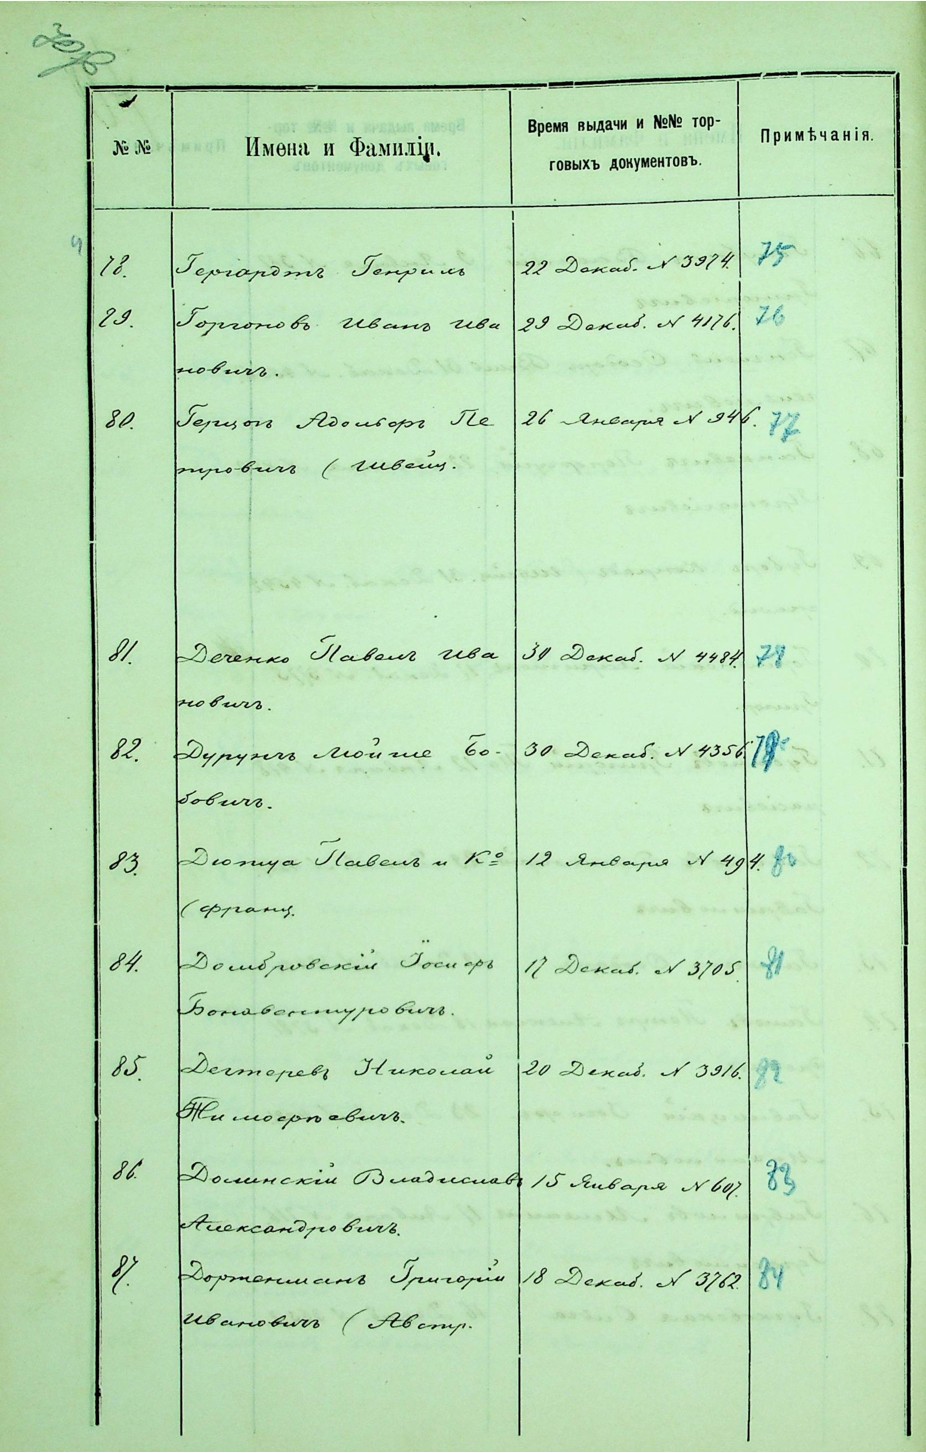 № №
Имена и Фамиліи.
Время выдачи и №№ тор-
говыхъ документовъ.
Примѣчанія.
78. Гергардтъ Генрихъ 22 Декаб. N 3974. 75
79. Горгоновъ Иванъ Ива 29 Декаб. N 4176. 76
новичъ.
80. Герцогъ Адольфъ Пе 26 Января N 946. 77
тровичъ (Швейц.
81. Деченко Павелъ Ива 30 Декаб. N 4484. 78
новичъ.
82. Дурунчъ Мойше Бо- 30 Декаб. N 4356. 79
бовичъ.
83. Дютуа Павелъ и Ко 12 Января N 494. 80
(франц.
84. Домбровскій Іосифъ 17 Декаб. N 3705. 81
Бонавентуровичъ.
85. Дегтеревъ Николай 20 Декаб. N 3916. 82
Тимофѣевичъ.
86. Долинскій Владиславъ 15 Января N 607. 83
Александровичъ.
87. Дортенманъ Григорій 18 Декаб. N 3762. 84
Ивановичъ (Австр.